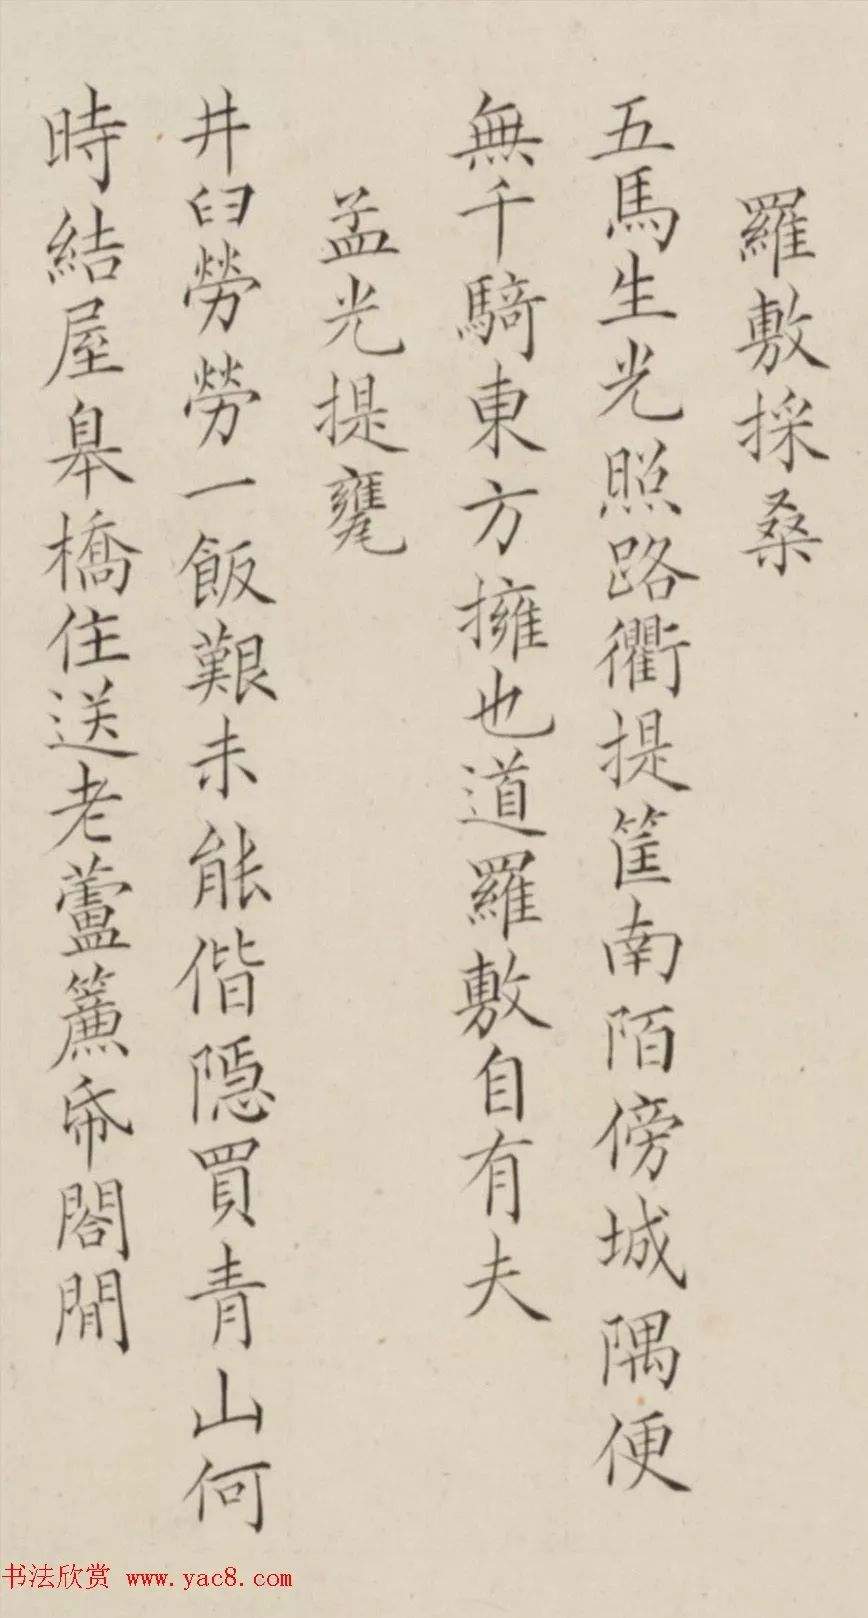 羅敷採桑
五馬生光照路衢提筐南陌傍城隅便
無千騎東方擁也道羅敷自有夫
孟光提甕
井臼勞勞一飯艱未能偕隱買青山何
時結屋皋橋住送老蘆簾帋閤閒
书法欣赏 www.yac8.com